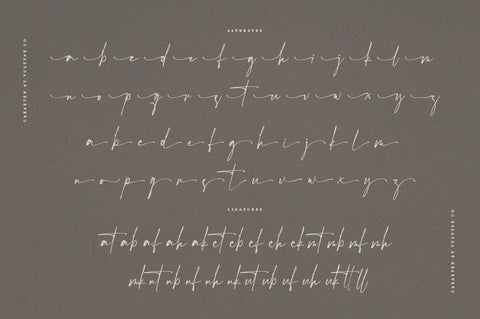 ALTERATES
a b c d e f g h i j k l m
n o p q r s t u v w x y z
a b c d e f g h i j k l m
n o p q r s t u v w x y z
LIGATURES
at ab af ah ak et eb ef ch ek mt mb mf mh
mk nt nb nf nh nk ut ub uf uh uk tt ll
CREARTED BY YULTYPE CO
CREARTED BY YULTYPE CO